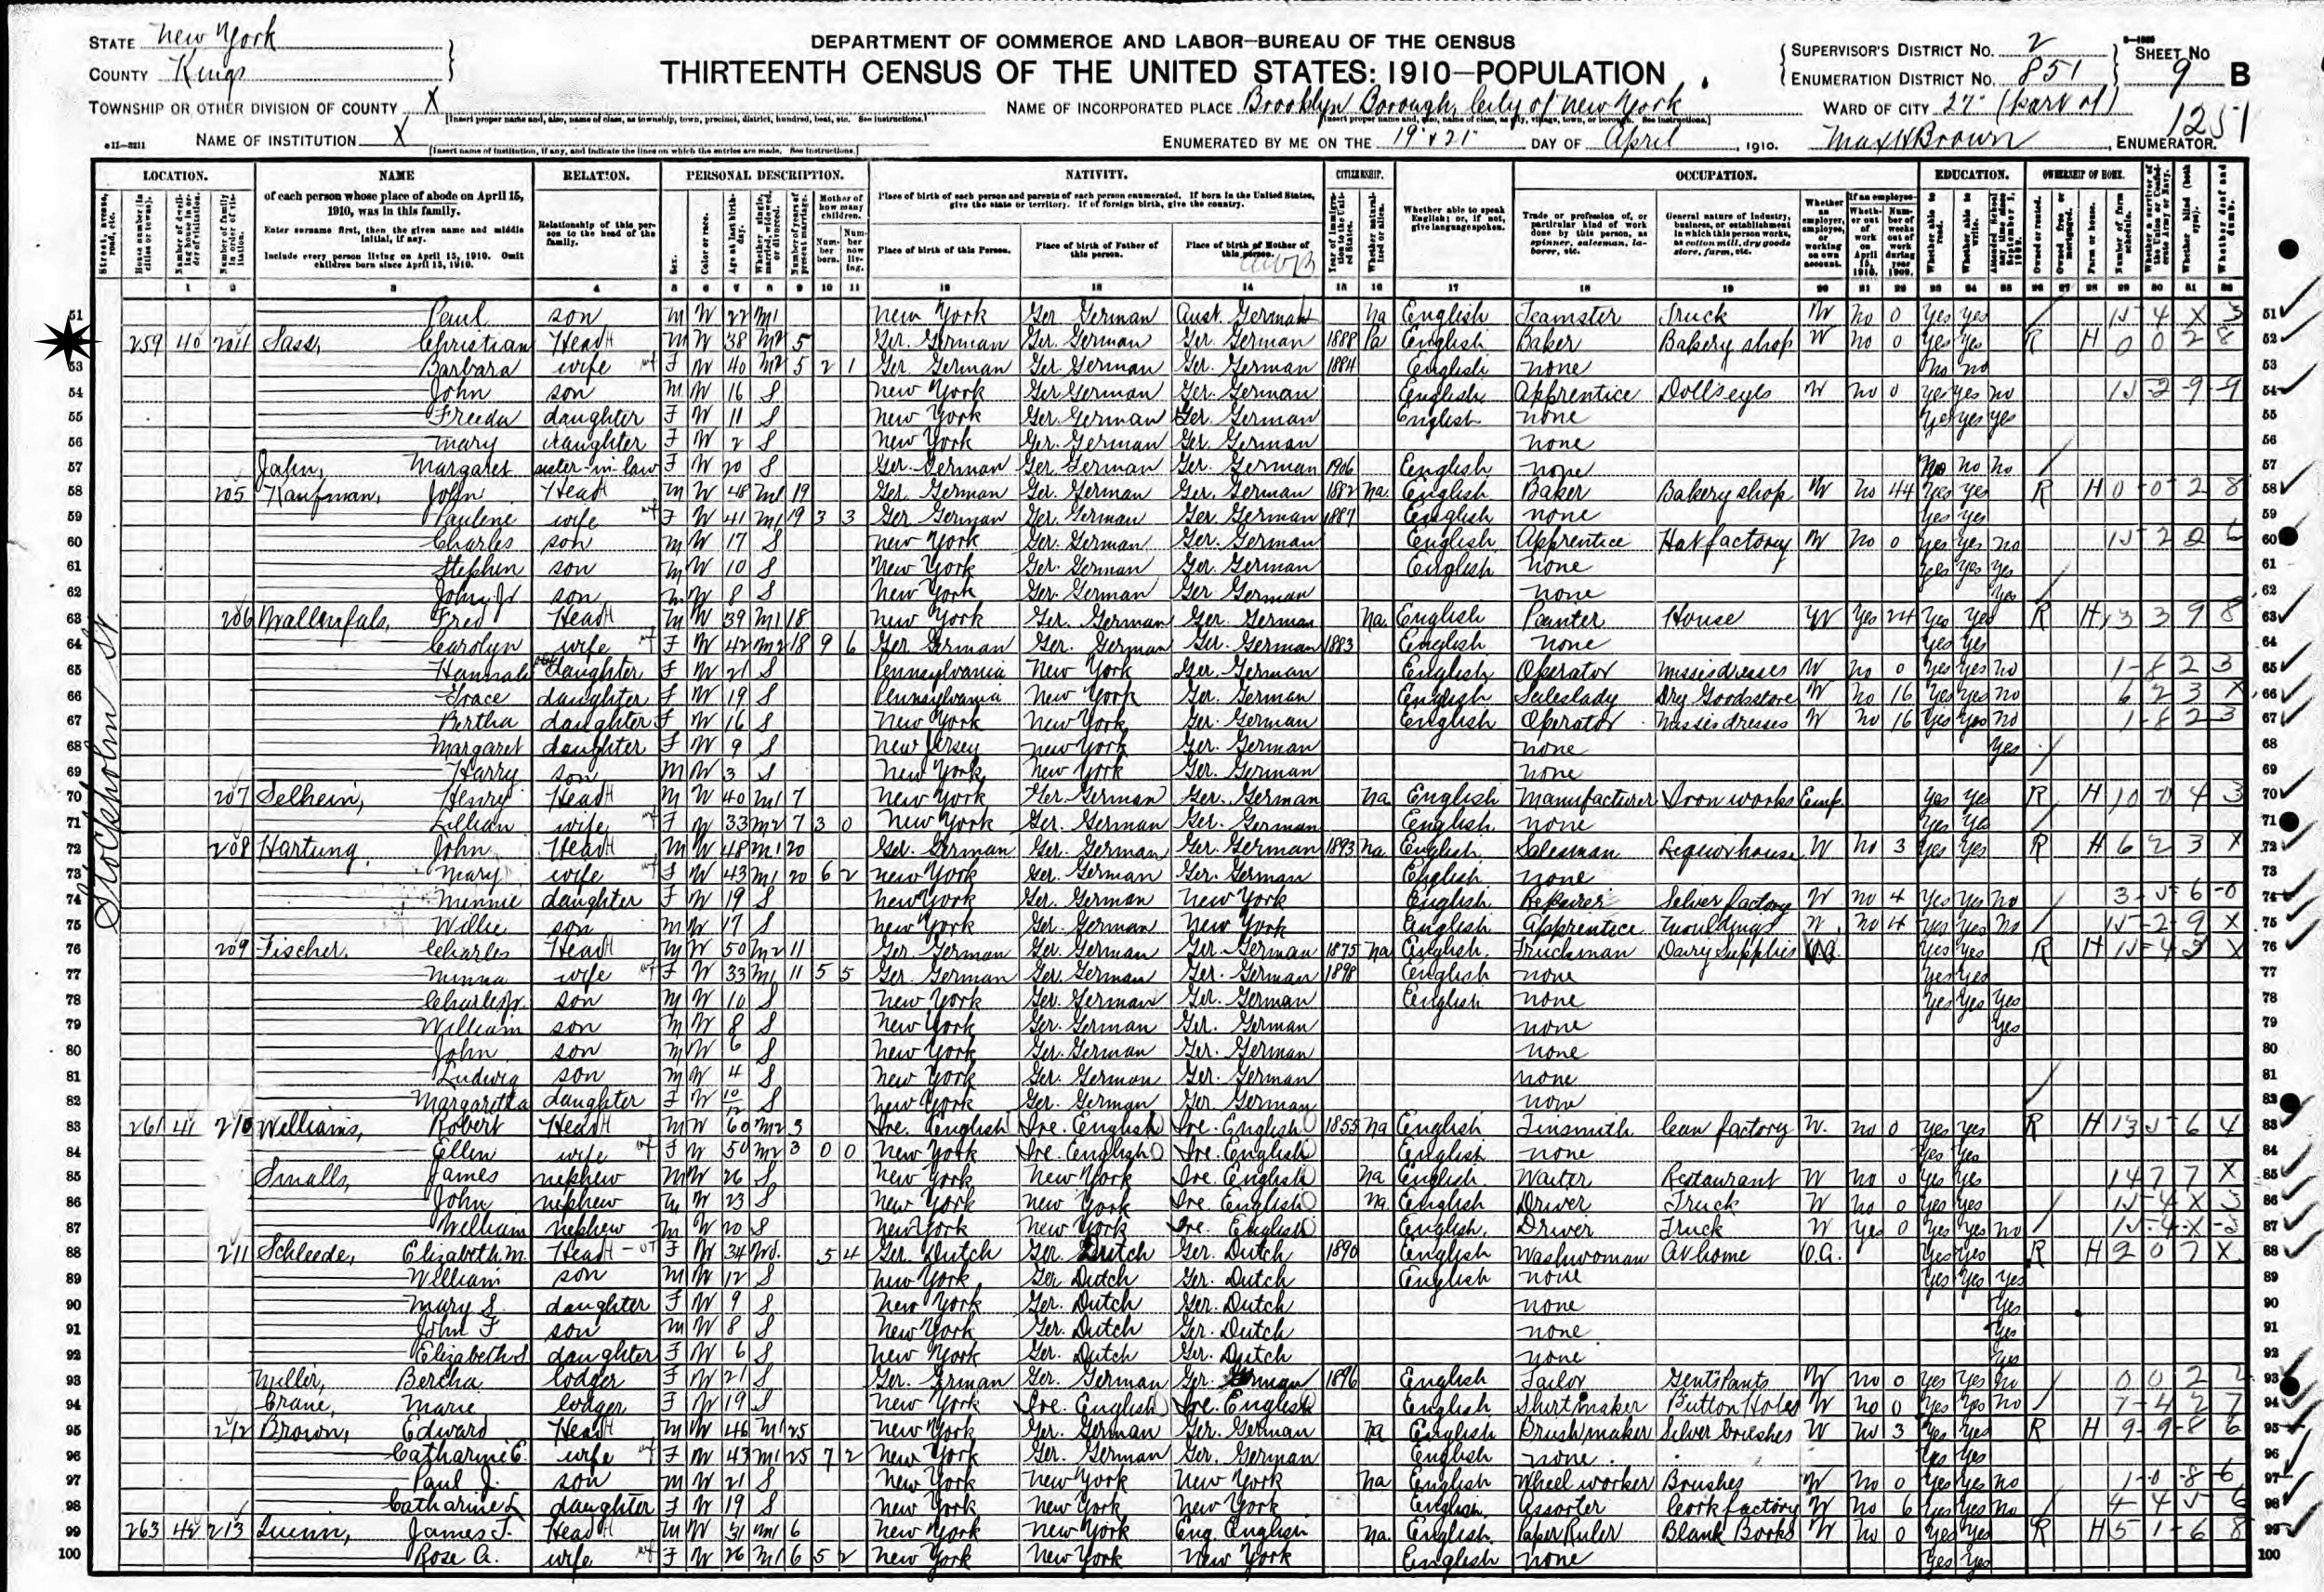 STATE New York
COUNTY Kings
TOWNSHIP OR OTHER DIVISION OF COUNTY X
NAME OF INSTITUTION X
DEPARTMENT OF COMMERCE AND LABOR—BUREAU OF THE CENSUS
THIRTEENTH CENSUS OF THE UNITED STATES: 1910—POPULATION
NAME OF INCORPORATED PLACE Brooklyn Borough, City of New York
ENUMERATED BY ME ON THE 19 & 21 DAY OF April, 1910.
SUPERVISOR'S DISTRICT No. 2
ENUMERATION DISTRICT No. 851
SHEET No 9 B
WARD OF CITY 27 (part of)
1251
Max Brown, ENUMERATOR.
LOCATION. NAME RELATION. PERSONAL DESCRIPTION. NATIVITY. CITIZENSHIP. OCCUPATION. EDUCATION. OWNERSHIP OF HOME.
of each person whose place of abode on April 15, 1910, was in this family.
Enter surname first, then the given name and middle initial, if any.
Include every person living on April 15, 1910. Omit children born since April 15, 1910.
Relationship of this person to the head of the family.
Place of birth of each person and parents of each person enumerated. If born in the United States, give the state or territory. If of foreign birth, give the country.
Place of birth of this Person. Place of birth of Father of this person. Place of birth of Mother of this person.
Whether able to speak English; or, if not, give language spoken.
Trade or profession of, or particular kind of work done by this person, as spinner, salesman, laborer, etc.
General nature of industry, business, or establishment in which this person works, as cotton mill, dry goods store, farm, etc.
Stockholm St.
51 Paul son M W 22 M1 New York Ger German Aust. German Na English Teamster Truck W No 0 Yes Yes
52 259 40 204 Sass, Christian Head M W 38 M2 5 Ger. German Ger. German Ger. German 1888 Pa English Baker Bakery shop W No 0 Yes Yes R H
53 Barbara wife F W 40 M2 5 2 1 Ger. German Ger. German Ger. German 1884 English none No No
54 John son M W 16 S New York Ger German Ger. German English Apprentice W No 0 Yes Yes No
55 Freeda daughter F W 11 S New York Ger. German Ger. German English none Yes Yes Yes
56 Mary daughter F W 2 S New York Ger. German Ger. German none
57 Jahn, Margaret sister-in-law F W 20 S Ger. German Ger. German Ger. German 1906 English none No No No
58 205 Kaufman, John Head M W 48 M1 19 Ger. German Ger. German Ger. German 1882 Na. English Baker Bakery shop W No 44 Yes Yes R H
59 Pauline wife F W 41 M1 19 3 3 Ger German Ger. German Ger. German 1887 English none Yes Yes
60 Charles son M W 17 S New York Ger. German Ger. German English Apprentice Hat factory W No 0 Yes Yes No
61 Stephen son M W 10 S New York Ger. German Ger. German English none Yes Yes Yes
62 John Jr son M W 8 S New York Ger. German Ger German none Yes
63 206 Wallenfals, Fred Head M W 39 M1 18 New York Ger. German Ger. German Na. English Painter House W Yes 24 Yes Yes R H
64 Carolyn wife F W 42 M2 18 9 6 Ger German Ger. German Ger. German 1883 English none Yes Yes
65 Hannah daughter F W 21 S Pennsylvania New York Ger. German English Operator Misses dresses W No 0 Yes Yes No
66 Grace daughter F W 19 S Pennsylvania New York Ger. German English Saleslady Dry Goods store W No 16 Yes Yes No
67 Bertha daughter F W 16 S New York New York Ger. German English Operator Misses dresses W No 16 Yes Yes No
68 Margaret daughter F W 9 S New Jersey New York Ger. German none Yes
69 Harry son M W 3 S New York New York Ger. German none
70 207 Selhein, Henry Head M W 40 M1 7 New York Ger. German Ger. German Na English Manufacturer Iron works Emp. Yes Yes R H
71 Lillian wife F W 33 M2 7 3 0 New York Ger. German Ger. German English none Yes Yes
72 208 Hartung, John Head M W 48 M1 20 Ger. German Ger. German Ger. German 1893 Na English Salesman Liquor house W No 3 Yes Yes R H
73 Mary wife F W 43 M1 20 6 2 New York Ger. German Ger. German English none
74 Minnie daughter F W 19 S New York Ger. German New York English Repairer Silver factory W No 4 Yes Yes No
75 Willie son M W 17 S New York Ger. German New York English Apprentice Mouldings W No 4 Yes Yes No
76 209 Fischer, Charles Head M W 50 M2 11 Ger. German Ger. German Ger. German 1875 Na English Truckman Dairy supplies Yes Yes R H
77 Minna wife F W 33 M1 11 5 5 Ger. German Ger. German Ger. German 1898 English none Yes Yes
78 Charles Jr. son M W 10 S New York Ger. German Ger. German English none Yes Yes Yes
79 William son M W 8 S New York Ger. German Ger. German none Yes
80 John son M W 6 S New York Ger. German Ger. German none
81 Ludwig son M W 4 S New York Ger. German Ger. German none
82 Margaretta daughter F W 10/12 S New York Ger. German Ger. German none
83 261 41 210 Williams, Robert Head M W 60 M2 3 Ire. English Ire. English Ire. English 1855 Na English Tinsmith Can factory W. No 0 Yes Yes R H
84 Ellen wife F W 50 M2 3 0 0 New York Ire. English Ire. English English none Yes Yes
85 Smalls, James nephew M W 26 S New York New York Ire. English Na English Waiter Restaurant W No 0 Yes Yes
86 John nephew M W 23 S New York New York Ire. English Na. English Driver Truck W No 0 Yes Yes
87 William nephew M W 20 S New York New York Ire. English English. Driver Truck W Yes 0 Yes Yes No
88 211 Schleede, Elizabeth M. Head F W 34 Wd. 5 4 Ger. Dutch Ger. Dutch Ger. Dutch 1890 English Washwoman At home O.A. Yes Yes R H
89 William son M W 12 S New York Ger Dutch Ger. Dutch English none Yes Yes Yes
90 Mary S. daughter F W 9 S New York Ger. Dutch Ger. Dutch none Yes
91 John F son M W 8 S New York Ger. Dutch Ger. Dutch none Yes
92 Elizabeth S daughter F W 6 S New York Ger. Dutch Ger. Dutch none Yes
93 Miller, Bertha lodger F W 21 S Ger. German Ger. German Ger. German 1896 English Tailor Gents Pants W No 0 Yes Yes No
94 Crane, Marie lodger F W 19 S New York Ire. English Ire. English English Shirtmaker Button Holes W No 0 Yes Yes No
95 212 Brown, Edward Head M W 46 M1 25 New York Ger. German Ger. German Na English Brushmaker Silver brushes W No 3 Yes Yes R H
96 Catharine E. wife F W 43 M1 25 7 2 New York Ger. German Ger. German English none. Yes Yes
97 Paul J. son M W 21 S New York New York New York Na English Wheel worker Brushes W No 0 Yes Yes No
98 Catharine L daughter F W 19 S New York New York New York English Assorter Cork factory W No 6 Yes Yes No
99 263 42 213 Quinn, James T. Head M W 31 M1 6 New York New York Eng. English Na. English Paper Ruler Blank Books W No 0 Yes Yes R H
100 Rose A. wife F W 26 M1 6 5 2 New York New York New York English none Yes Yes